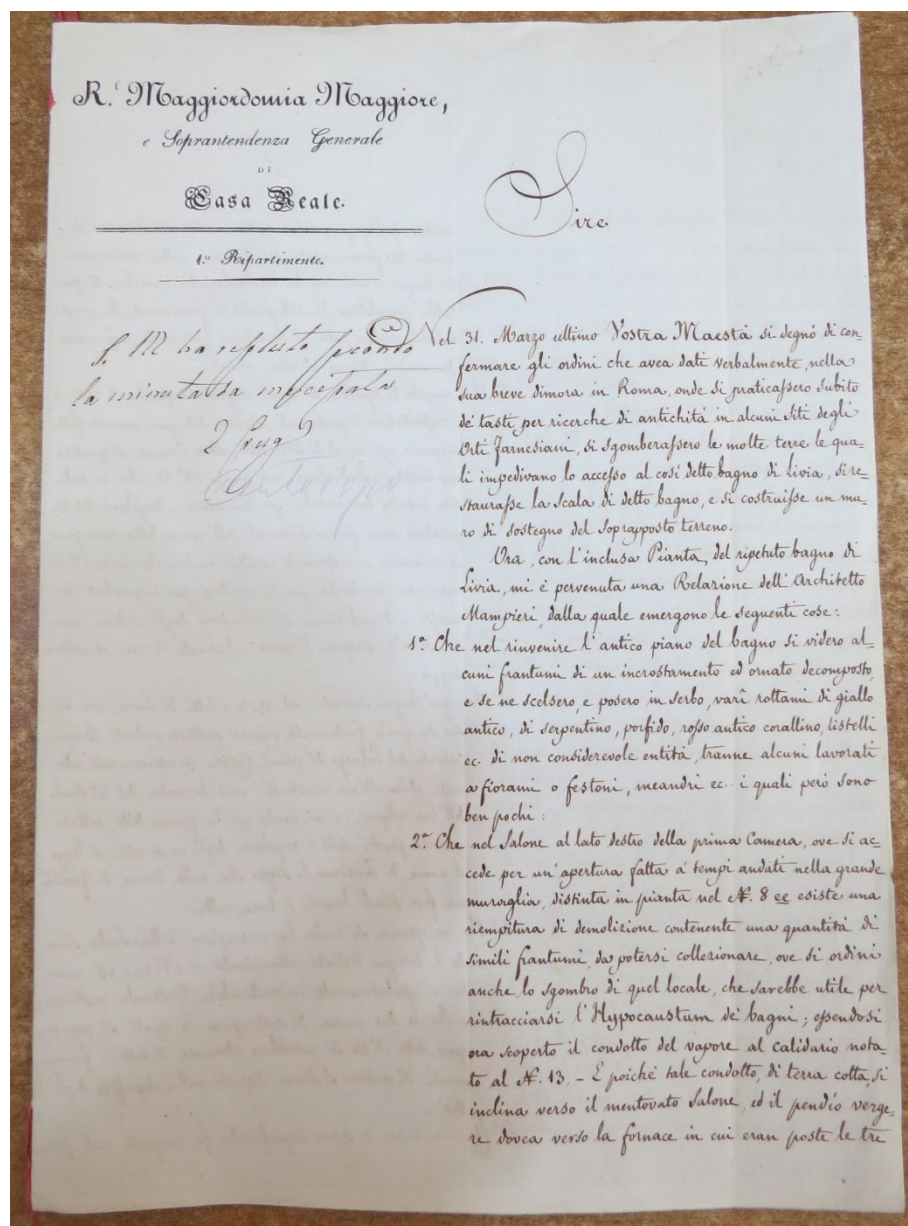 R.ᵉ Maggiordomia Maggiore,
e Soprantendenza Generale
DI
Casa Reale.
1.º Ripartimento.
S. M. ha risoluto secondo
la minuta
2
Sire
Nel 31. Marzo ultimo Vostra Maestà si degnò di con-
fermare gli ordini che avea dati verbalmente, nella
sua breve dimora in Roma, onde si praticassero subito
de' tasti per ricerche di antichità in alcuni siti degli
Orti Farnesiani, si sgomberassero le molte terre le qua-
li impedivano lo accesso al così detto bagno di Livia, si re-
staurasse la Scala di detto bagno, e si costruisse un mu-
ro di sostegno del soprapposto terreno.
Ora, con l'inclusa Pianta, del ripetuto bagno di
Livia, mi è pervenuta una Relazione dell'Architetto
Mampieri, dalla quale emergono le seguenti cose:
1.º Che nel rinvenire l'antico piano del bagno si videro al-
cuni frantumi di un incrostamento ed ornato decomposto,
e se ne scelsero, e posero in serbo, varî rottami di giallo
antico, di serpentino, porfido, rosso antico corallino, listelli
ec. di non considerevole entità, tranne alcuni lavorati
a fiorami o festoni, meandri ec. i quali però sono
ben pochi:
2.º Che nel Salone al lato destro della prima Camera, ove si ac-
cede per un'apertura fatta a' tempi andati nella grande
muraglia, distinta in pianta nel N. 8 ee esiste una
riempitura di demolizione contenente una quantità di
simili frantumi, da potersi collezionare, ove si ordini
anche lo sgombro di quel locale, che sarebbe utile per
rintracciarsi l'Hypocaustum de' bagni; essendosi
ora scoperto il condotto del vapore al calidario nota-
to al N. 13. – E poichè tale condotto, di terra cotta, si
inclina verso il mentovato Salone, ed il pendìo verge-
re dovea verso la fornace in cui eran poste le tre